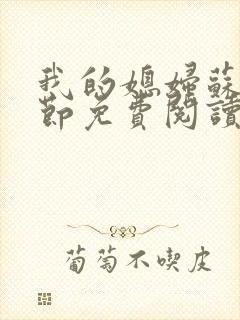 我的媳婦蘇
節免費閱讀
葡萄不喫皮